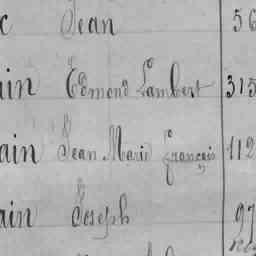 c Jean 56
ain Edmond Lambert 315
ain Jean Marie François 112
ain Joseph 97